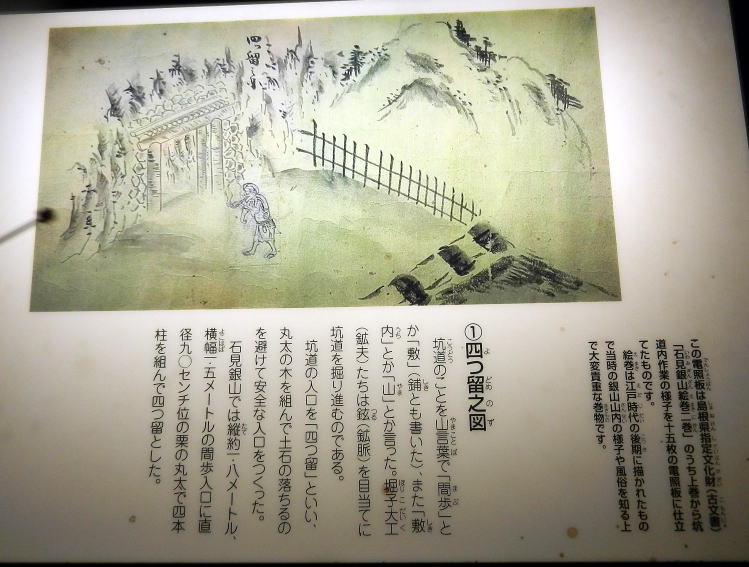 四つ留之図
この電照板は島根県指定文化財（古文書）
「石見銀山絵巻二巻」のうち上巻から坑
道内作業の様子を十五枚の電照板に仕立
てたものです。
絵巻は江戸時代の後期に描かれたもの
で当時の銀山山内の様子や風俗を知る上
で大変貴重な巻物です。
①四つ留之図
坑道のことを山言葉で「間歩」と
か「敷」（鋪とも書いた）、また「敷
内」とか「山」とか言った。堀子大工
（鉱夫）たちは鉉（鉱脈）を目当てに
坑道を掘り進むのである。
坑道の入口を「四つ留」といい、
丸太の木を組んで土石の落ちるの
を避けて安全な入口をつくった。
石見銀山では縦約一・八メートル、
横幅一・五メートルの間歩入口に直
径九〇センチ位の栗の丸太で四本
柱を組んで四つ留とした。